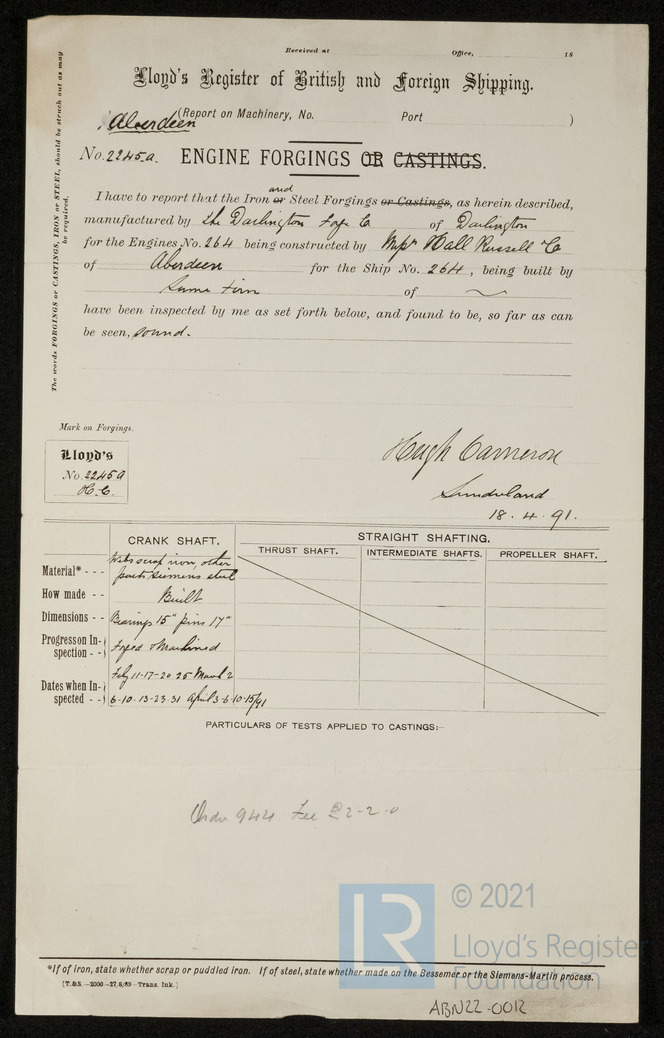 Received at Office, 18
Lloyd's Register of British and Foreign Shipping.
Aberdeen (Report on Machinery, No. Port )
No. 2245a. ENGINE FORGINGS OR CASTINGS.
and
I have to report that the Iron or Steel Forgings or Castings, as herein described,
manufactured by the Darlington Forge Co of Darlington
for the Engines No. 264 being constructed by Messrs Hall Russell & Co
of Aberdeen for the Ship No. 264, being built by
Same firm of
have been inspected by me as set forth below, and found to be, so far as can
be seen, sound.
The words FORGINGS or CASTINGS, IRON or STEEL, should be struck out as may
be required.
Mark on Forgings.
Lloyd's
No. 2245a
H.C.
Hugh Cameron
Sunderland
18.4.91.
CRANK SHAFT. STRAIGHT SHAFTING.
THRUST SHAFT. INTERMEDIATE SHAFTS. PROPELLER SHAFT.
Material* - - - Webs scrap iron, other
parts Siemens steel
How made - - Built
Dimensions - - Bearings 15" pins 17"
Progress on In-
spection - - Forged & Machined
Dates when In-
spected - - Feby 11-17-20 25 March 2
6-10-13-23-31 April 3-6-10-15/91
PARTICULARS OF TESTS APPLIED TO CASTINGS:—
Order 944 Fee £2-2-0
© 2021
LR
Lloyd's Register
Foundation
*If of iron, state whether scrap or puddled iron. If of steel, state whether made on the Bessemer or the Siemens-Martin process.
(T.&S.—2000—27/8/89—Trans. Ink.)
ABN22-0012